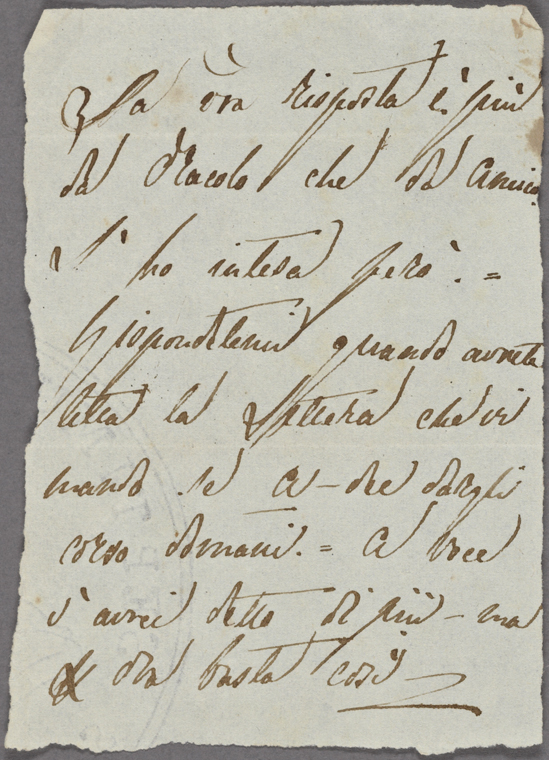 La vra risposta è più
da Oracolo che da Amico
L' ho intesa però. =
Rispondetemi quando avrete
letta la Lettera che vi
mando se a - dee dargli
corso domani. = A voce
v' avrei detto di più - ma
ora basta così